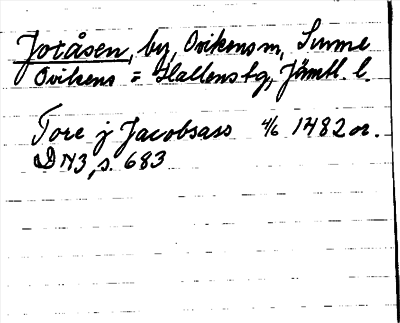 Jotåsen, by, Ovikens m, Sunne
Ovikens = Hallens tg, Jämtl. l.
Tore j Jacobsass 4/6 1482 or.
DN3, s. 683